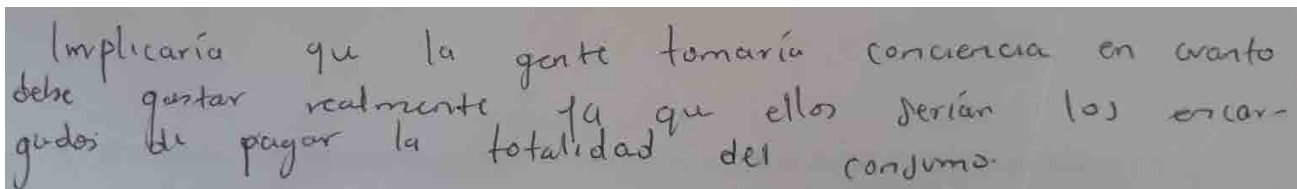 Implicaría qu la gente tomaría conciencia en cuanto
debe gastar realmente ya que ellos serían los encar-
gados de pagar la totalidad del consumo.